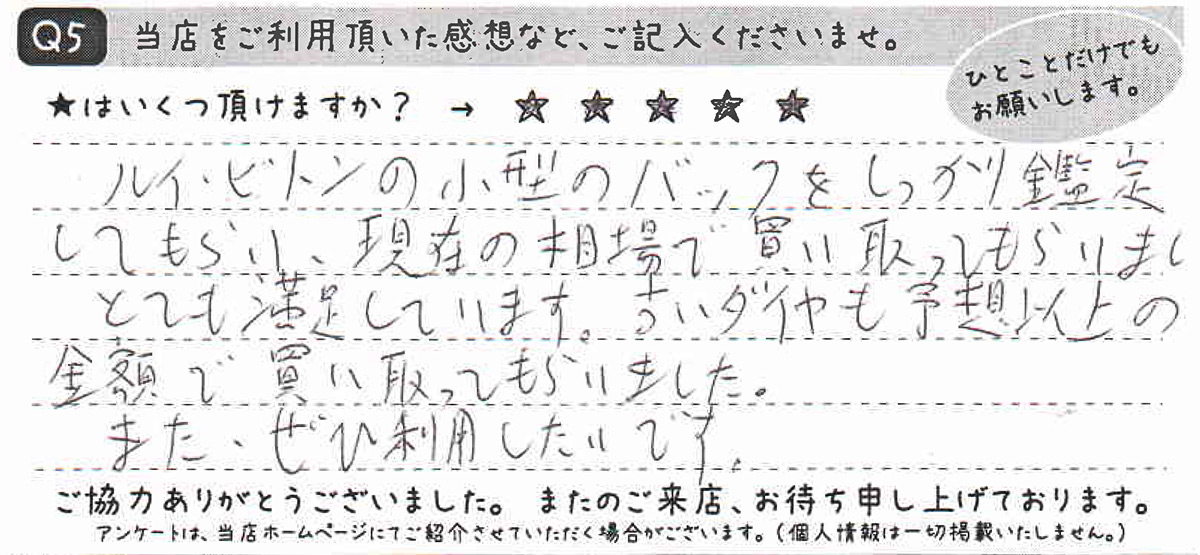 Q5 当店をご利用頂いた感想など、ご記入くださいませ。
ひとことだけでも
お願いします。
★はいくつ頂けますか？ → ★ ★ ★ ★ ★
ルイ・ビトンの小型のバックをしっかり鑑定
してもらい、現在の相場で買い取ってもらいまし
とても満足しています。古いダイヤも予想以上の
金額で買い取ってもらいました。
また、ぜひ利用したいです。
ご協力ありがとうございました。 またのご来店、お待ち申し上げております。
アンケートは、当店ホームページにてご紹介させていただく場合がございます。（個人情報は一切掲載いたしません。）